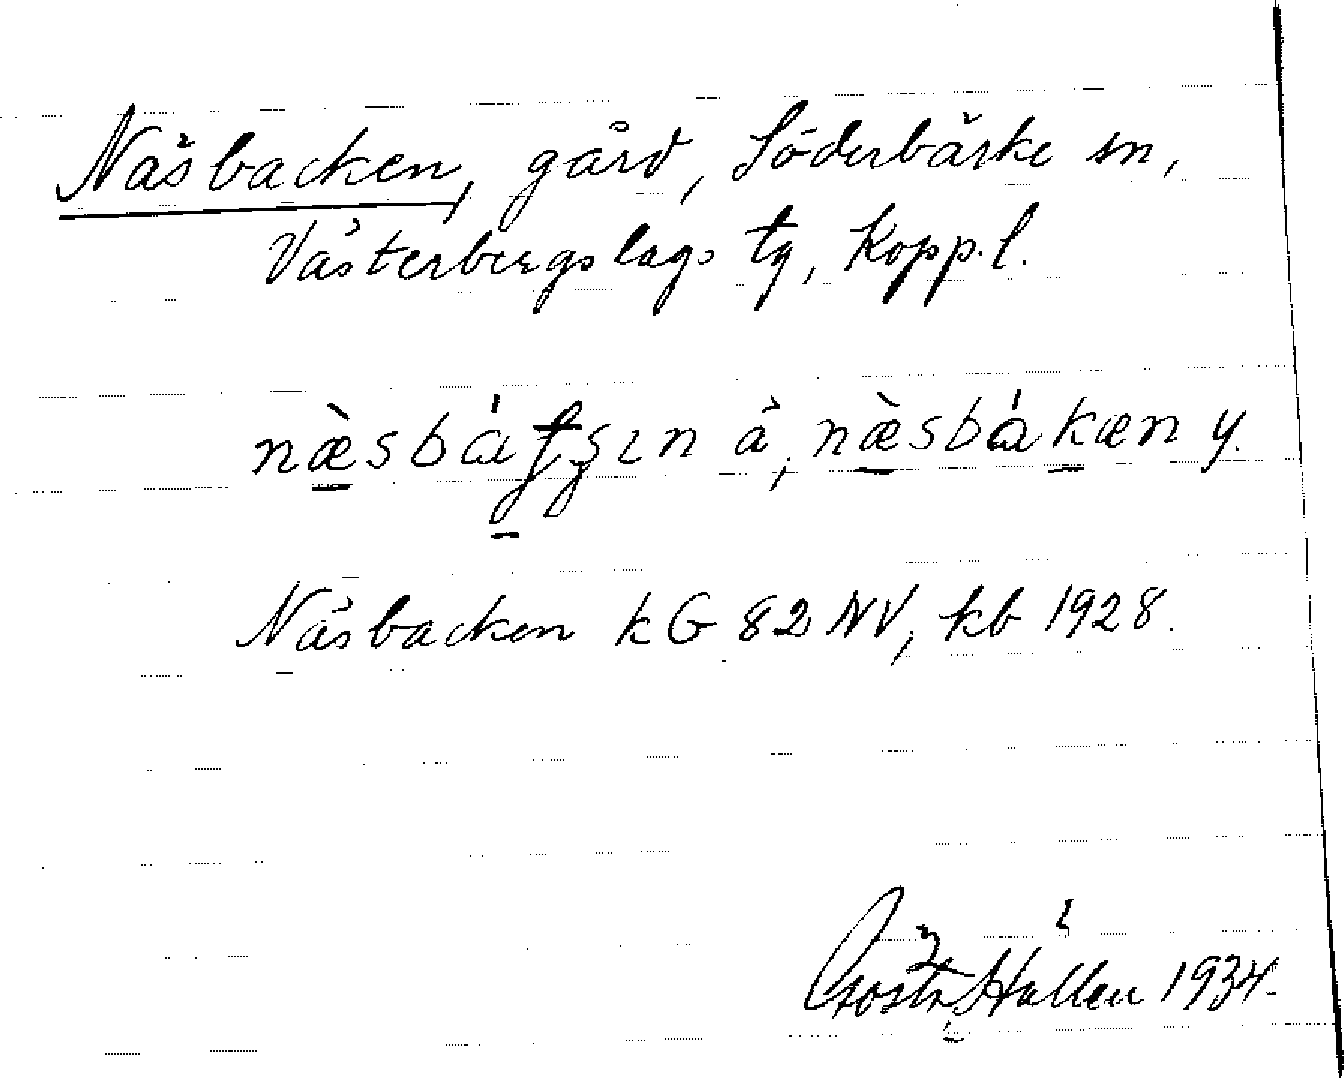 Näsbacken, gård, Söderbärke sn,
Västerbergslags tg, Kopp. l.
næ̀sbá ɪn ä, næ̀sbákæn y.
Näsbacken kG 82 NV, kb 1928.
Gösta Hallén 1934.